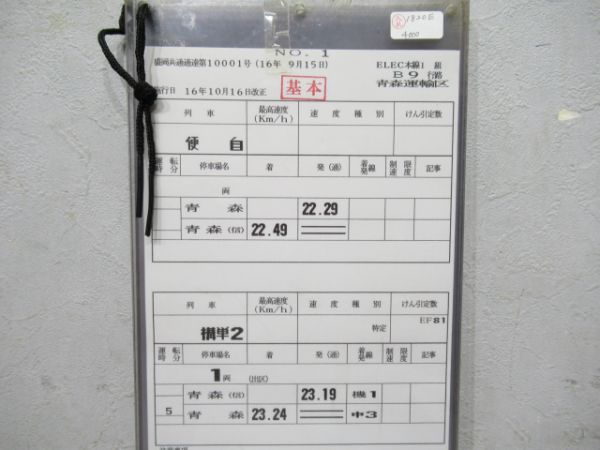 1820E
4000
NO. 1
盛岡共通通達第10001号(16年 9月15日)
ELEC本線1 組
B9行路
青森運輸区
施行日 16年10月16日改正
基本
列車 最高速度(Km/h) 速度種別 けん引定数
便自
運転時分 停車場名 着 発(通) 着発線 制限速度 記事
両
青森 22.29
青森(信) 22.49
列車 最高速度(Km/h) 速度種別 けん引定数
構単2 特定 EF81
運転時分 停車場名 着 発(通) 着発線 制限速度 記事
1両 (出区)
青森(信) 23.19 機1
5 青森 23.24 中3